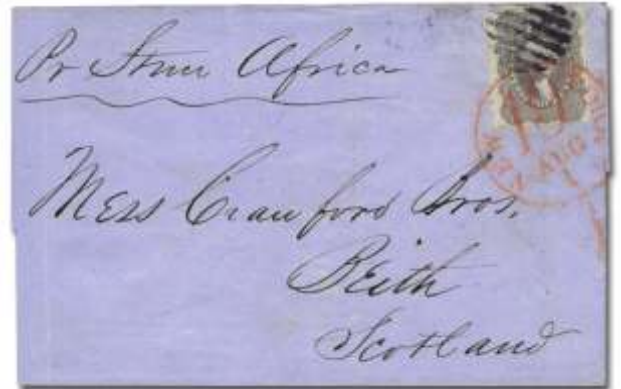 Pr Stmr Africa
AUG
Mess Crawford Bros.
Beith
Scotland